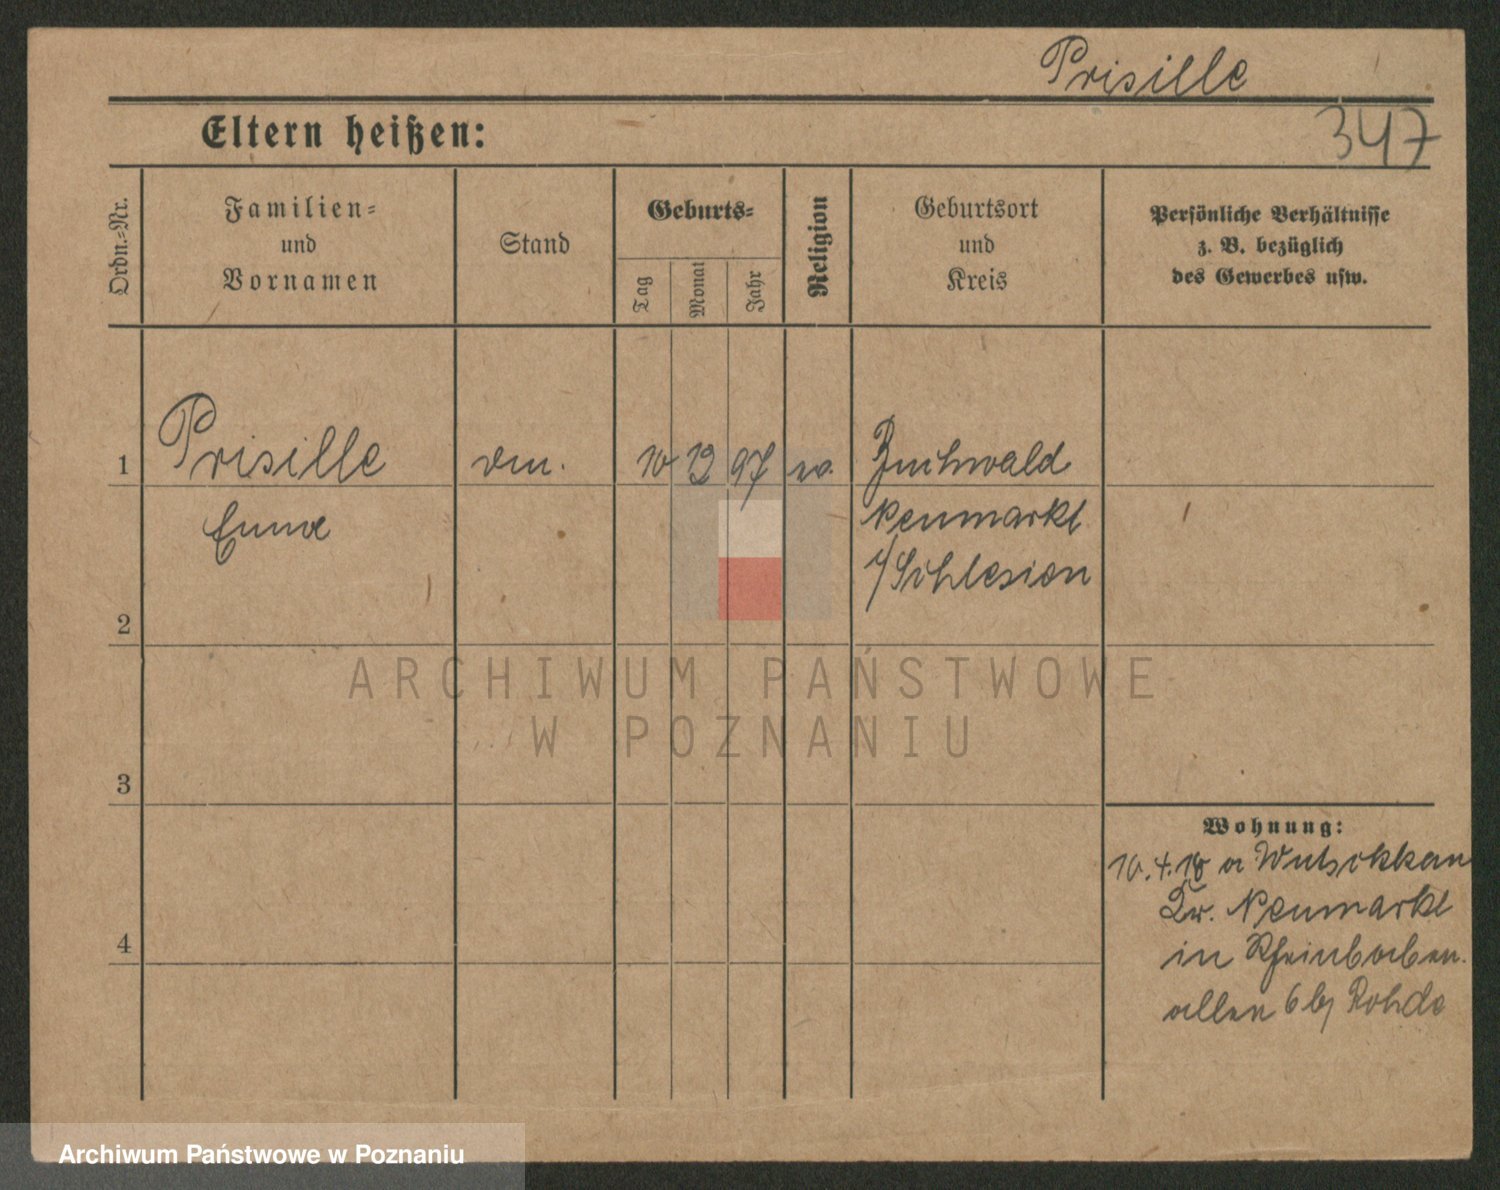 Prisille
347
Eltern heißen:
Ordn.-Nr.
Familien- und Vornamen
Stand
Geburts-
Tag
Monat
Jahr
Religion
Geburtsort und Kreis
Persönliche Verhältnisse
z. B. bezüglich
des Gewerbes usw.
1 Prisille 10 12 97 ev. Buchwald
Emma Neumarkt
i/Schlesien
2
3
4
Wohnung:
10.4.18 a
Kr. Neumarkt
in Rheinbaben
allee 6 b/ Rohde
ARCHIWUM PAŃSTWOWE
W POZNANIU
Archiwum Państwowe w Poznaniu